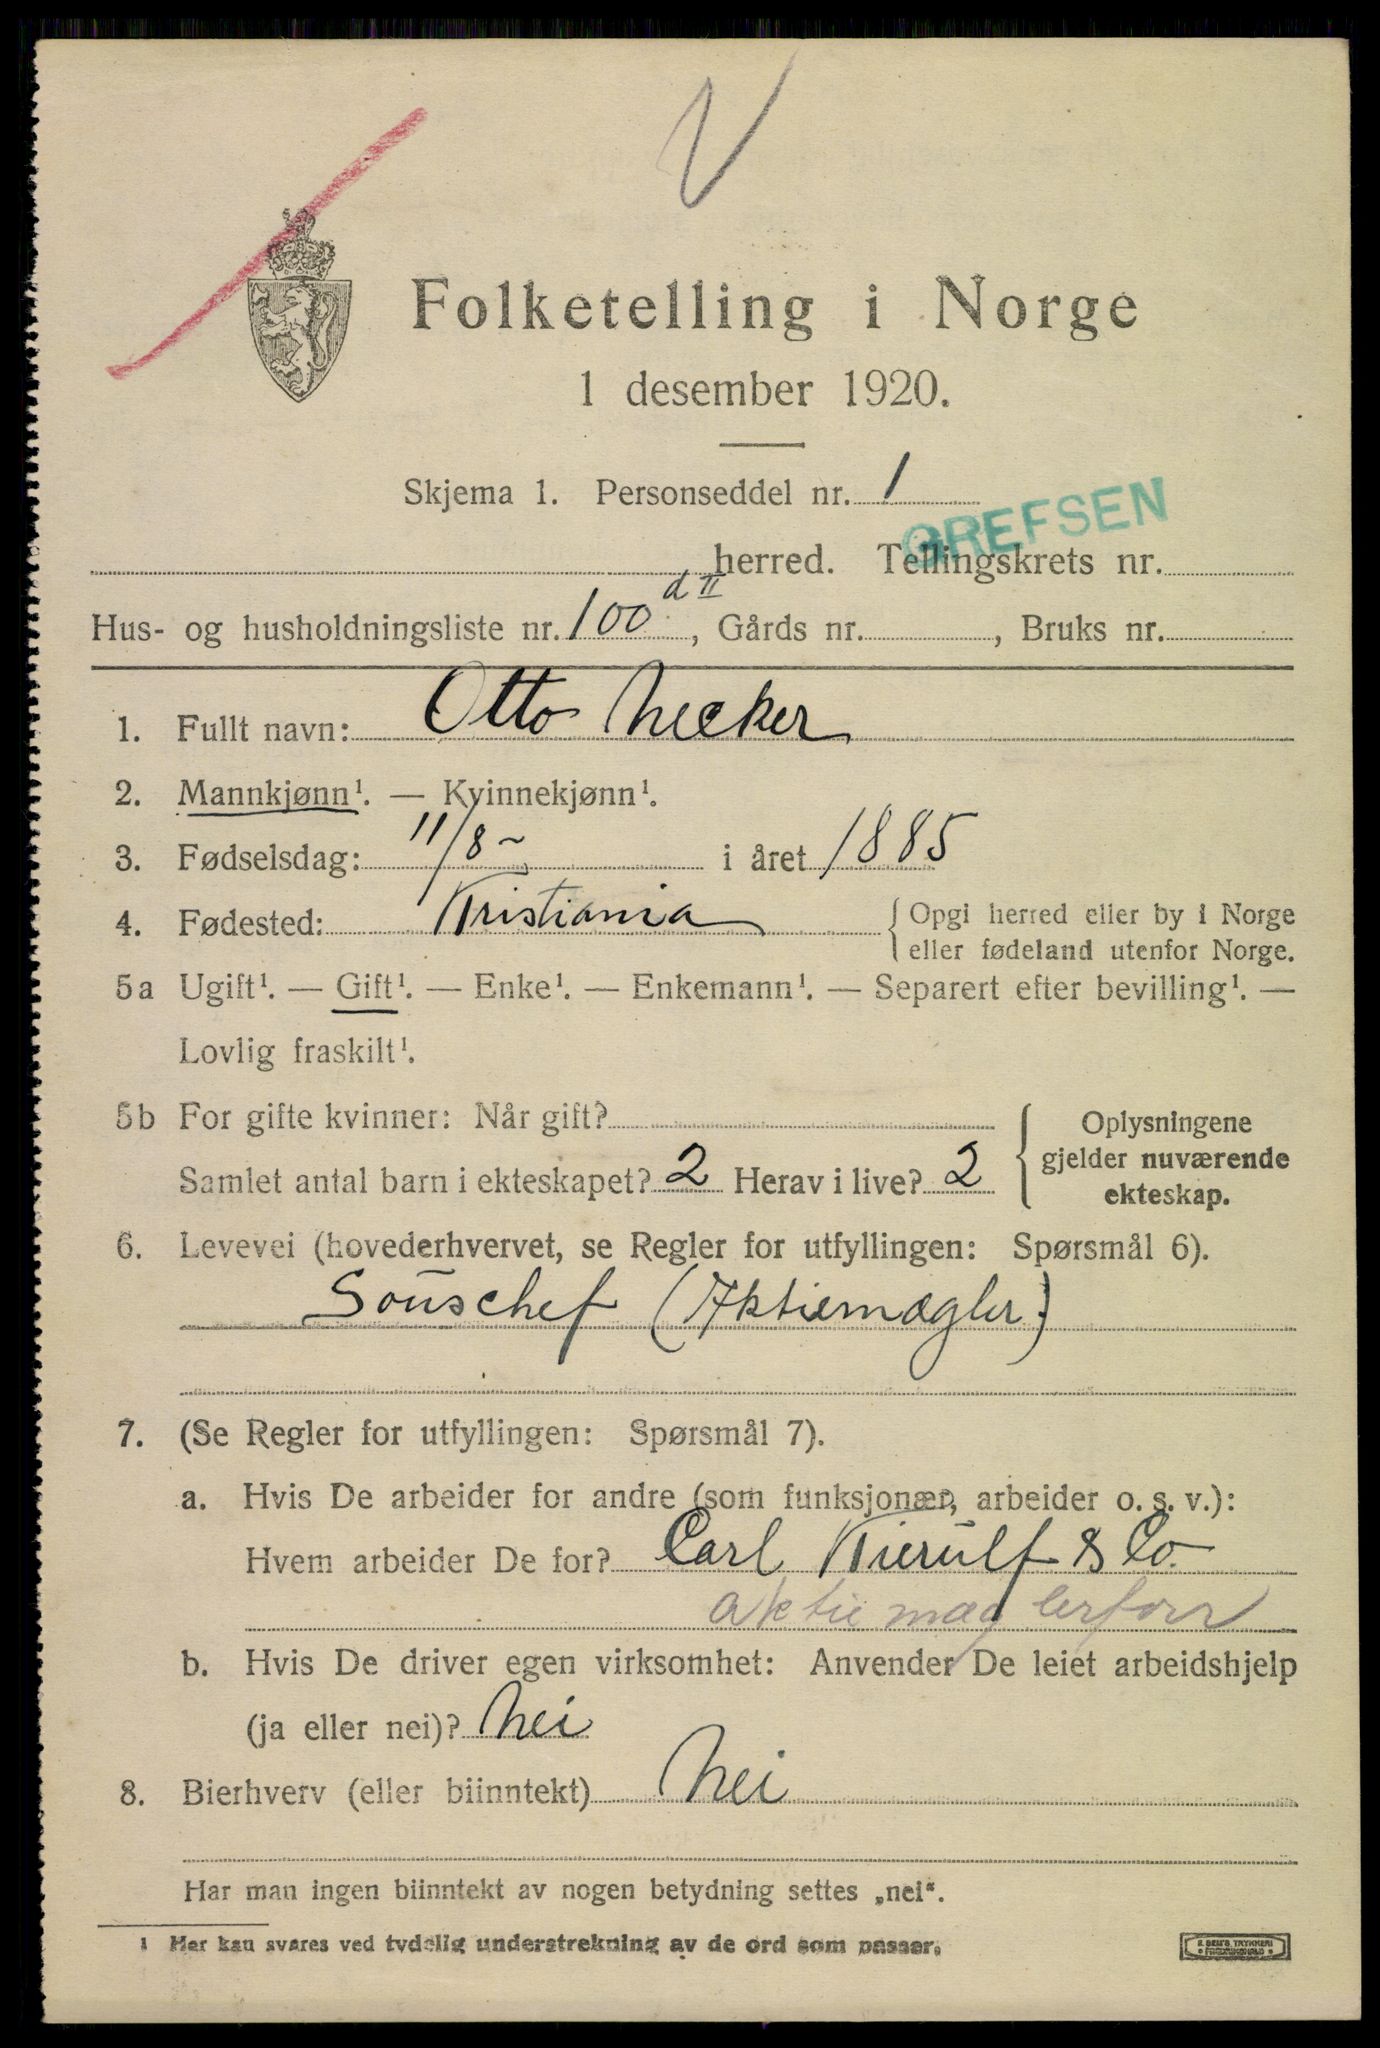 V
Folketelling i Norge
1 desember 1920.
Skjema 1. Personseddel nr. 1
GREFSEN
herred. Tellingskrets nr.
Hus- og husholdningsliste nr. 100 d II, Gårds nr. , Bruks nr.
1. Fullt navn: Otto Necker
2. Mannkjønn¹. — Kvinnekjønn¹.
3. Fødselsdag: 11/8- i året 1885
4. Fødested: Kristiania { Opgi herred eller by i Norge
eller fødeland utenfor Norge.
5a Ugift¹. — Gift¹. — Enke¹. — Enkemann¹. — Separert efter bevilling¹. —
Lovlig fraskilt¹.
5b For gifte kvinner: Når gift?
Samlet antal barn i ekteskapet? 2 Herav i live? 2
{ Oplysningene
gjelder nuværende
ekteskap.
6. Levevei (hovederhvervet, se Regler for utfyllingen: Spørsmål 6).
Souschef (Aktiemægler)
7. (Se Regler for utfyllingen: Spørsmål 7).
a. Hvis De arbeider for andre (som funksjonær, arbeider o. s. v.):
Hvem arbeider De for? Carl Kierulf & Co.
aktiemæglerforr
b. Hvis De driver egen virksomhet: Anvender De leiet arbeidshjelp
(ja eller nei)? Nei
8. Bierhverv (eller biinntekt) Nei
Har man ingen biinntekt av nogen betydning settes „nei“.
1 Her kan svares ved tydelig understrekning av de ord som passer.
E. SEM'S TRYKKERI
FREDRIKSHALD